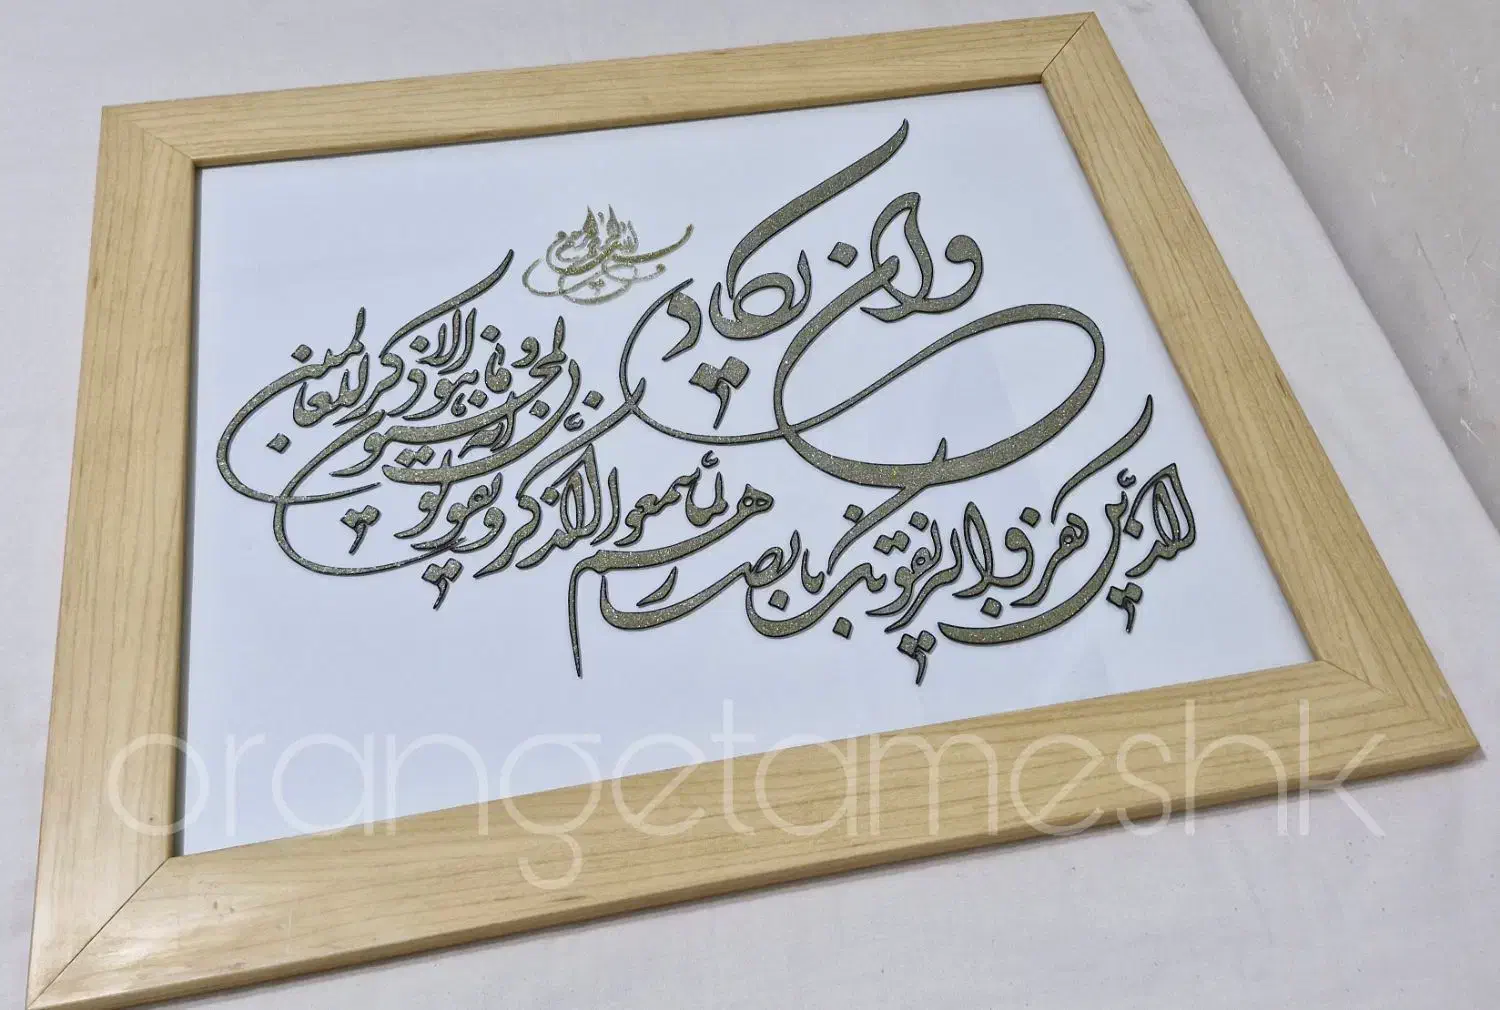 بسم الله الرحمن الرحیم
وان یکاد
الذین کفروا لیزلقونک بابصارهم لما سمعوا الذکر و یقولون
انه لمجنون
و ما هو الا ذکر للعالمین
orangetameshk